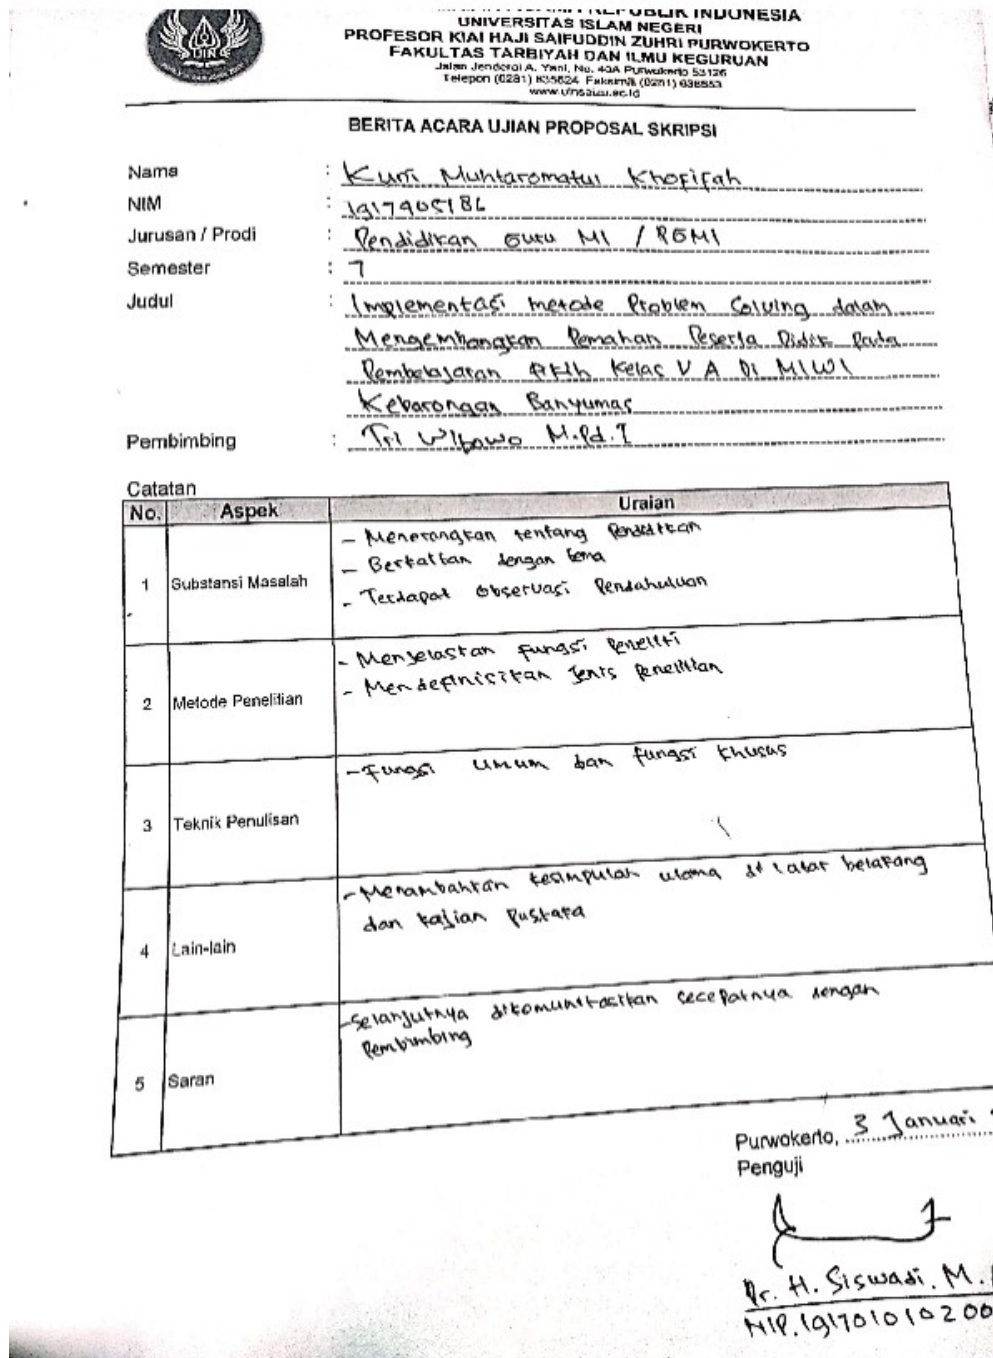 REPUBLIK INDONESIA
UNIVERSITAS ISLAM NEGERI
PROFESOR KIAI HAJI SAIFUDDIN ZUHRI PURWOKERTO
FAKULTAS TARBIYAH DAN ILMU KEGURUAN
Jalan Jenderal A. Yani, No. 40A Purwokerto 53126
Telepon (0281) 635624 Faksimili (0281) 636553
www.uinsaizu.ac.id
BERITA ACARA UJIAN PROPOSAL SKRIPSI
Nama : Kurri Muhtaromatul Khofifah
NIM : 1917405186
Jurusan / Prodi : Pendidikan Guru MI / PGMI
Semester : 7
Judul : Implementasi metode Problem Solving dalam
Mengembangkan Pemahan Peserta Didik Pada
Pembelajaran Fikih Kelas V A Di MIWI
Kebarongan Banyumas
Pembimbing : Tri Wibowo M.Pd.I
Catatan
No. Aspek Uraian
1 Substansi Masalah
- Menerangkan tentang Pendidikan
- Berkaitan dengan tema
- Terdapat Observasi Pendahuluan
2 Metode Penelitian
- Menjelaskan fungsi Peneliti
- Mendefinisikan Jenis penelitian
3 Teknik Penulisan
- Fungsi umum dan fungsi khusus
4 Lain-lain
- Menambahkan kesimpulan utama di latar belakang
dan kajian Pustaka
5 Saran
- Selanjutnya dikomunikasikan secepatnya dengan
Pembimbing
Purwokerto, 3 Januari
Penguji
Dr. H. Siswadi. M.
NIP. 19170101020